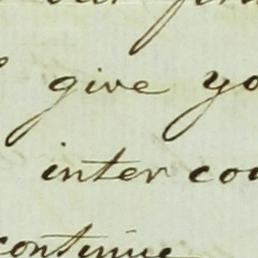 give yo
inter cou
continue